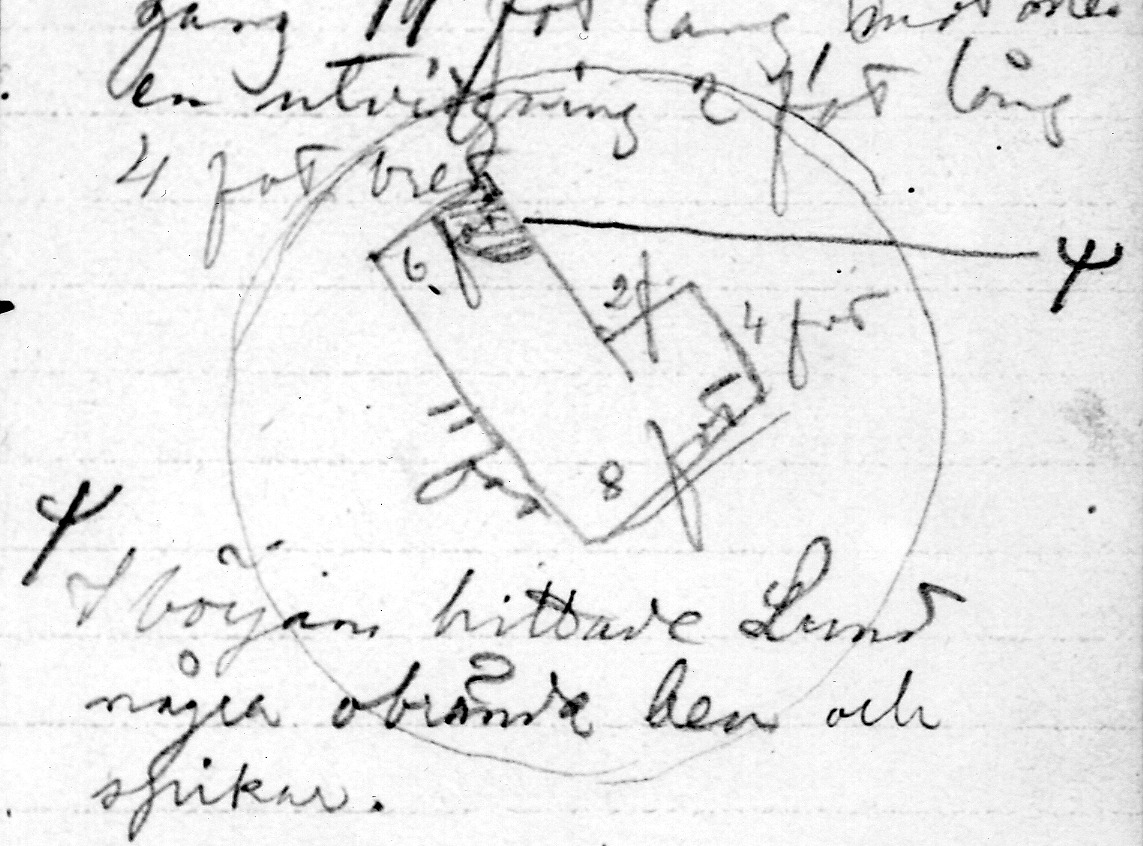 gång 14 fot lång mot
en utvidgning 2 fot lång
4 fot bred
6 fot
ψ
2 f
4 fot
11 fot
8 fot
ψ
I början hittade Lund
några obrända ben och
spikar.